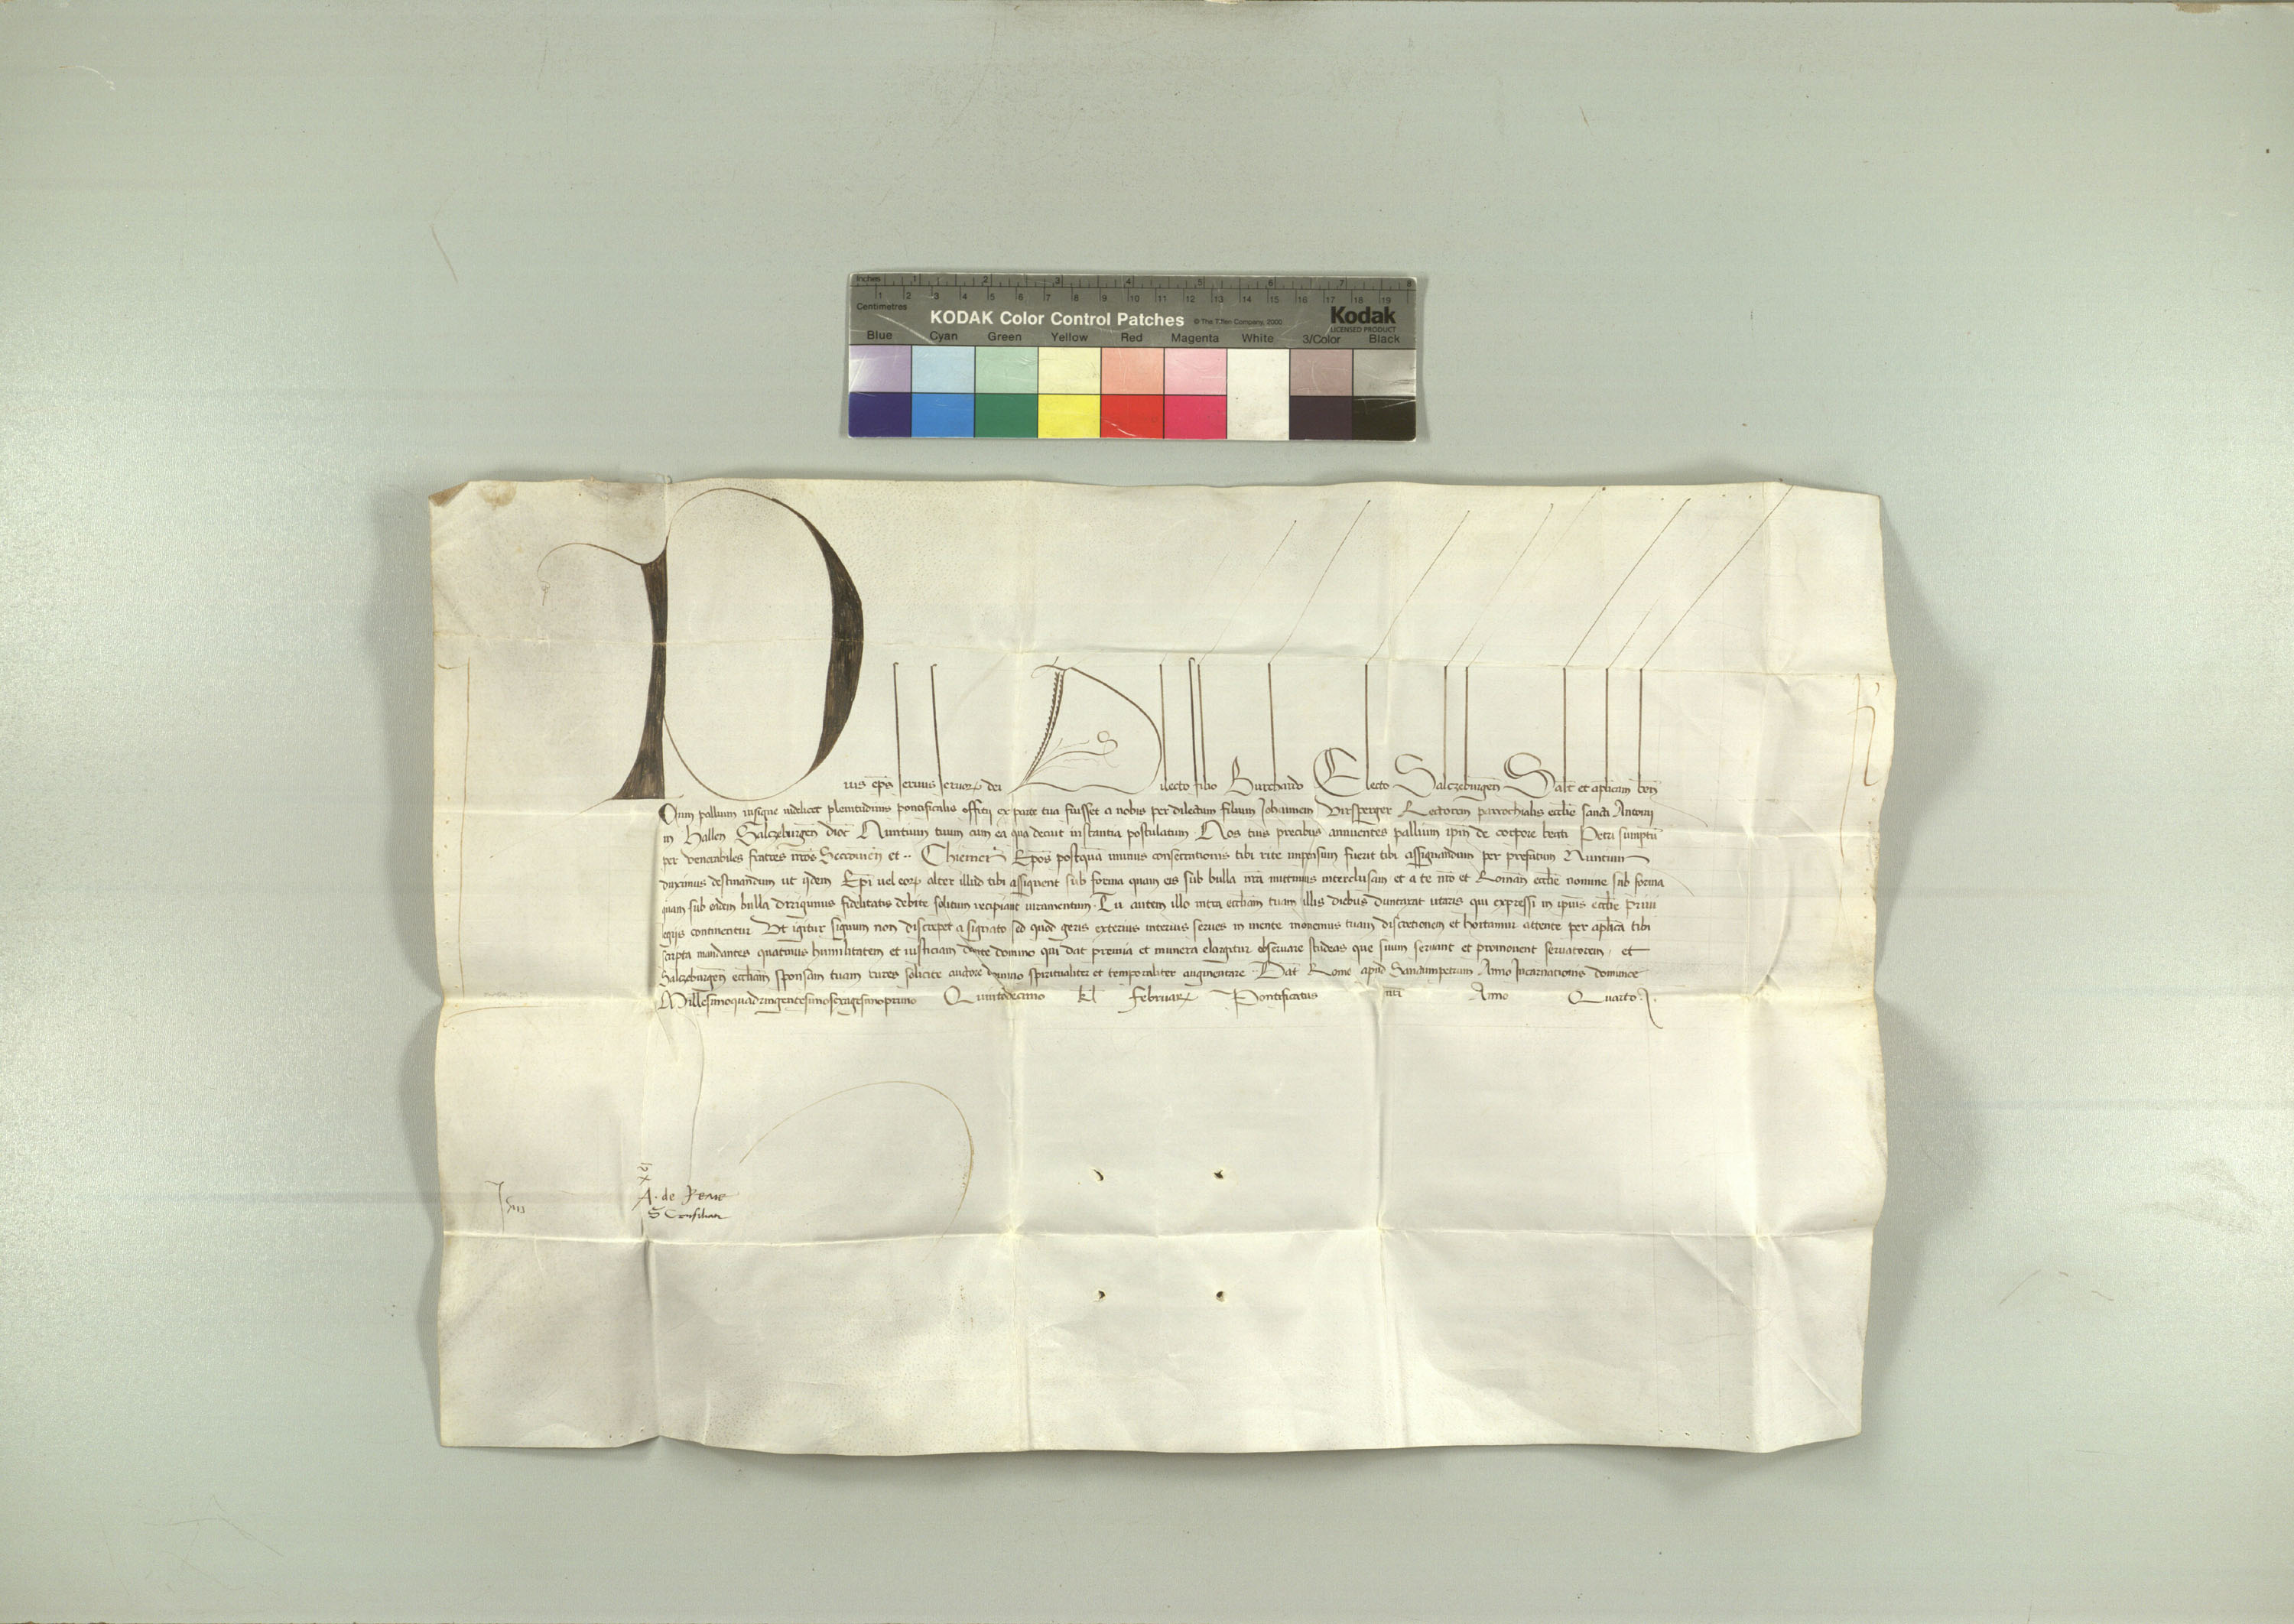 Inches 1 2 3 4 5 6 7 8
1 2 3 4 5 6 7 8 9 10 11 12 13 14 15 16 17 18 19
Centimetres
KODAK Color Control Patches © The Tiffen Company, 2000 Kodak
LICENSED PRODUCT
Blue Cyan Green Yellow Red Magenta White 3/Color Black
Pius ep̄s servus servorꝝ dei Dilecto filio Burchardo Electo Salczeburgen̄ Salt̄ et aplicam ben̄
Cum pallium insigne videlicet plenitudinis pontificalis officii ex parte tua fuisset a nobis per dilectum filium Johannem Rectorem parrochialis ecclie sancti Antonii
in Hallen Salczeburgen̄ dioc̄ Nuntium tuum cum ea qua decuit instantia postulatum Nos tuis precibus annuentes pallium ipm̄ de corpore beati Petri sumptū
per venerabiles fratres nr̄os Seccovien̄ et ·· Chiemen̄ Ep̄os postquā munus consecrationis tibi rite impensum fuerit tibi assignandum per prefatum Nuntium
duximus destinandum ut ijdem Ep̄i vel eorꝝ alter illud tibi assignent sub forma quam eis sub bulla nr̄a mittimus interclusam et a te nr̄o et Roman̄ ecclie nomine sub forma
quam sub eadem bulla dirigimus fidelitatis debite solitum recipiant iuramentum · Tu autem illo intra eccliam tuam illis diebus duntaxat utaris qui expressi in ipsius ecclie privi
legijs continentur Ut igitur signum non discrepet a signato sed quod geris exterius interius serves in mente monemus tuam discretionem et hortamur attente per aplica tibi
scripta mandantes quatinus humilitatem et iusticiam dante domino qui dat premia et munera elargitur observare studeas que suum servant et promovent servatorem et
Salczeburgen̄ eccliam sponsam tuam cures solicite auctore domino spiritualiter et temporaliter augmentare · Dat̄ Rome apud Sanctumpetrum Anno Incarnationis dominice
Millesimoquadringentesimosexagesimoprimo Quintodecimo kl̄ Februarꝝ Pontificatus nr̄i Anno Quarto
A. de